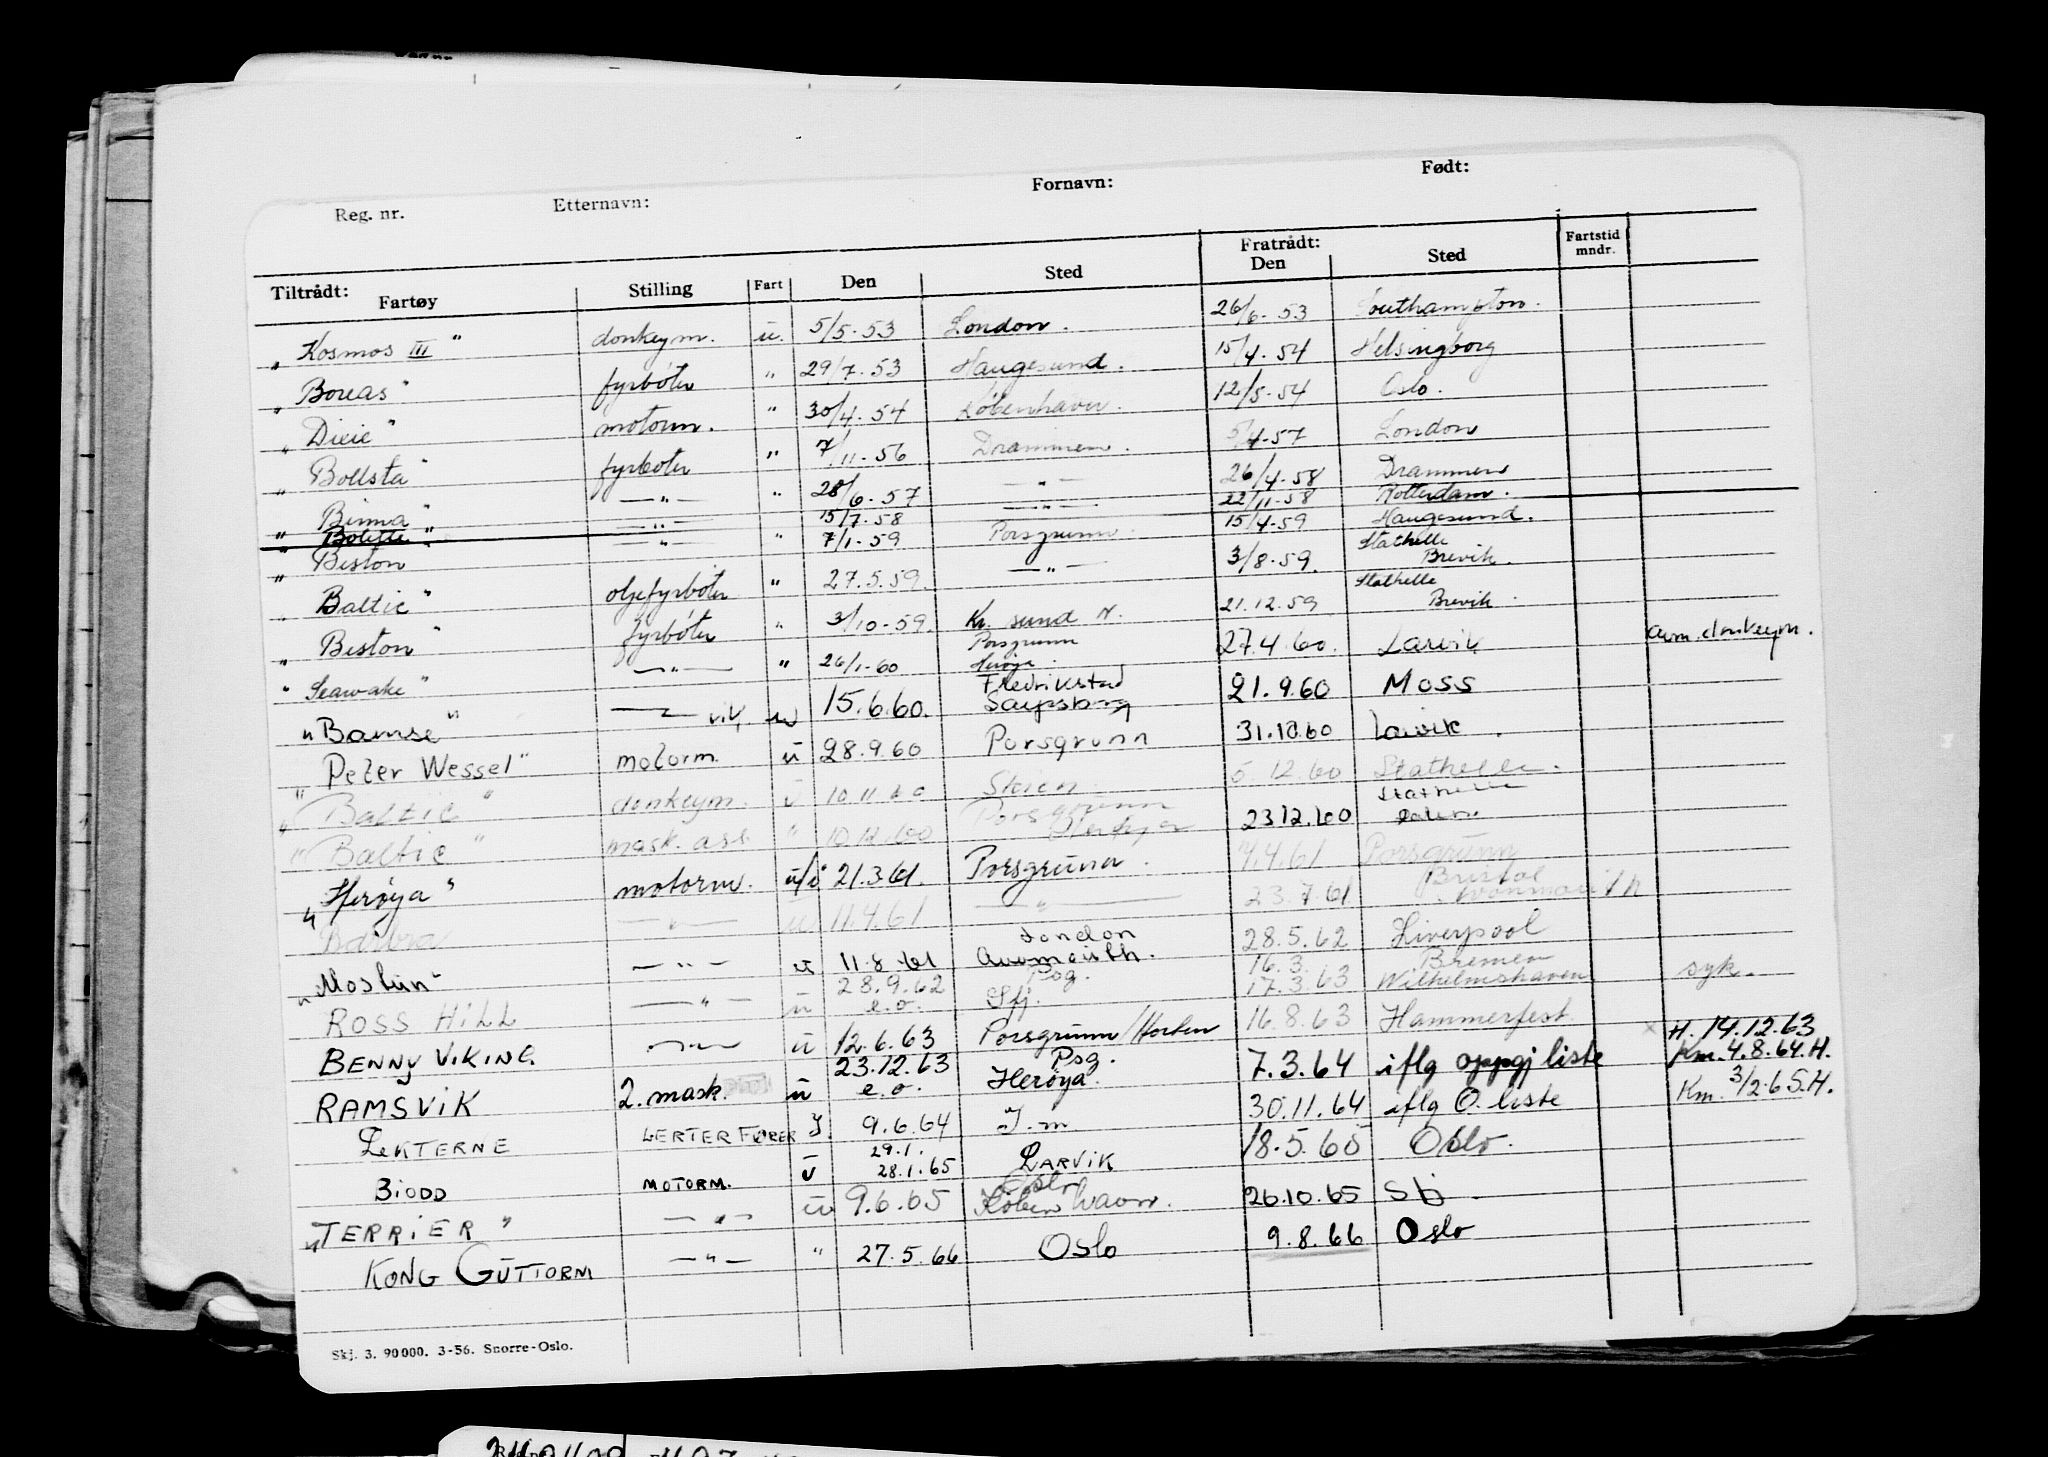 Reg. nr. Etternavn: Fornavn: Født:
Tiltrådt: Fratrådt:
Fartøy Stilling Fart Den Sted Den Sted Fartstid mndr.
"Kosmos III" donkeym. u. 5/5-53 London. 26/6-53 Southampton.
"Boreas" fyrbøter " 29/7-53 Haugesund. 15/4-54 Helsingborg
"Dixie" motorm. " 30/4-54 København. 12/5-54 Oslo.
"Bollsta" fyrbøter " 7/11-56 Drammen. 5/4-57 London
"Binna" —"— " 28/6-57 —"— 26/4-58 Drammen
"Bolette" —"— 15/7-58 —"— 22/11-58 Rotterdam.
"Beston —"— " 7/1-59 Porsgrunn. 15/4-59 Haugesund.
"Baltic" oljefyrbøter " 27.5.59. —"— 3/8-59. Stathelle Brevik.
"Beston" fyrbøter " 3/10-59. Kr. sund N. 21.12.59 Stathelle Brevik.
"Seawake" —"— " 26/1-60 Porsgrunn Herøya. 27.4.60. Larvik avm. donkeym.
"Bamse" —"— 15.6.60. Fredrikstad Sarpsborg 21.9.60 Moss
"Peter Wessel" motorm. u 28.9.60 Porsgrunn 31.10.60 Larvik.
"Baltic" donkeym. u 10.11.60 Skien 5.12.60 Stathelle.
"Baltic" mask. ass. " 10.12.60 Porsgrunn 23.12.60 Stathelle
"Herøya" motorm. u/i 21.3.61. Porsgrunn. 7.4.61 Porsgrunn
Barbra —"— u 11.4.61 —"— 23.7.61 Bristol Avonmouth
"Mostun" —"— u 11.8.61 London Avonmouth. 28.5.62 Liverpool
ROSS HILL —"— u 28.9.62 e.o. Psg. Sfj. 16.3. 17.3.63 Bremen Wilhelmshaven syk.
BENNY VIKING —"— u 12.6.63 Porsgrunn/Horten 16.8.63 Hammerfest.
RAMSVIK 2. mask. u 23.12.63 e.o. Psg. Herøya. 7.3.64 iflg oppgj liste H. 14.12.63 Km. 4.8.64.H.
LEKTERNE LEKTERFØRER I. 9.6.64 I.m 30.11.64 iflg O. liste Km. 3/2.65.H.
BIODD MOTORM. u 29.1. 28.1.65 LARVIK Oslo 18.5.65 Oslo.
"TERRIER" —"— u 9.6.65 København. 26.10.65 Sbj
KONG GUTTORM —"— " 27.5.66 Oslo 9.8.66 Oslo
Skj. 3. 90000. 3-56. Snorre-Oslo.